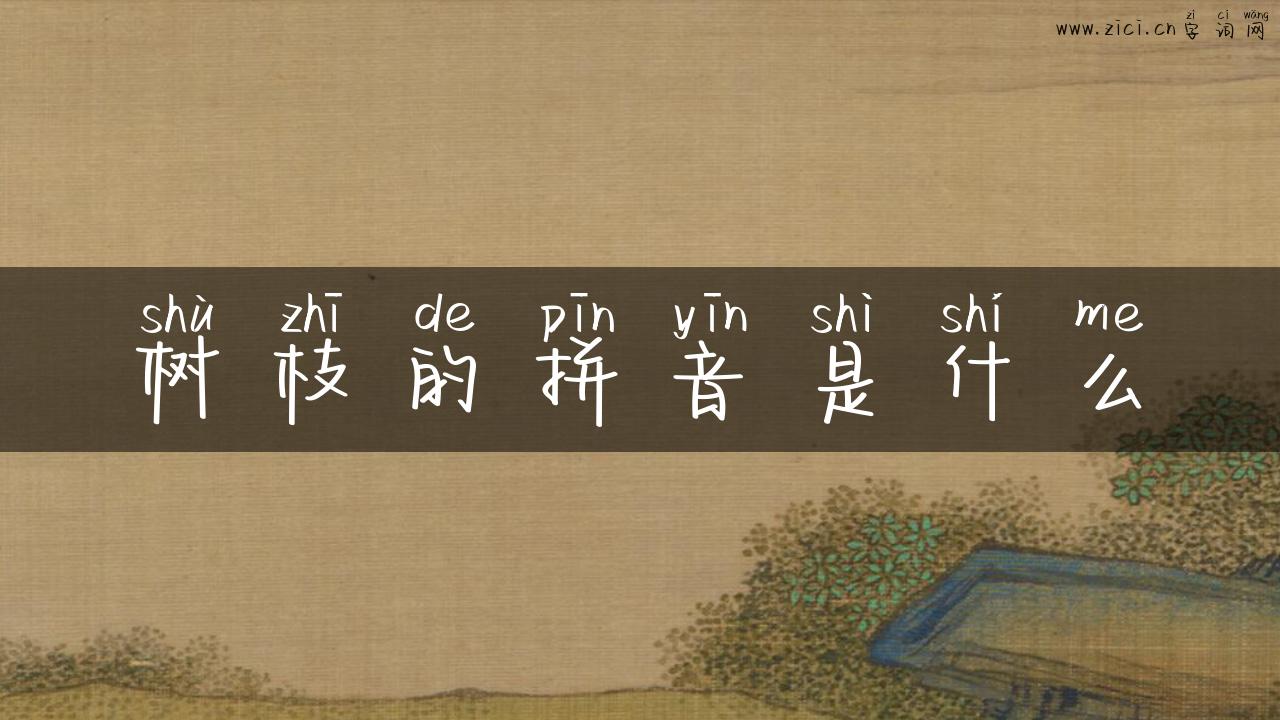 zì cí wǎng
www.zici.cn 字词网
shù zhī de pīn yīn shì shí me
树枝的拼音是什么